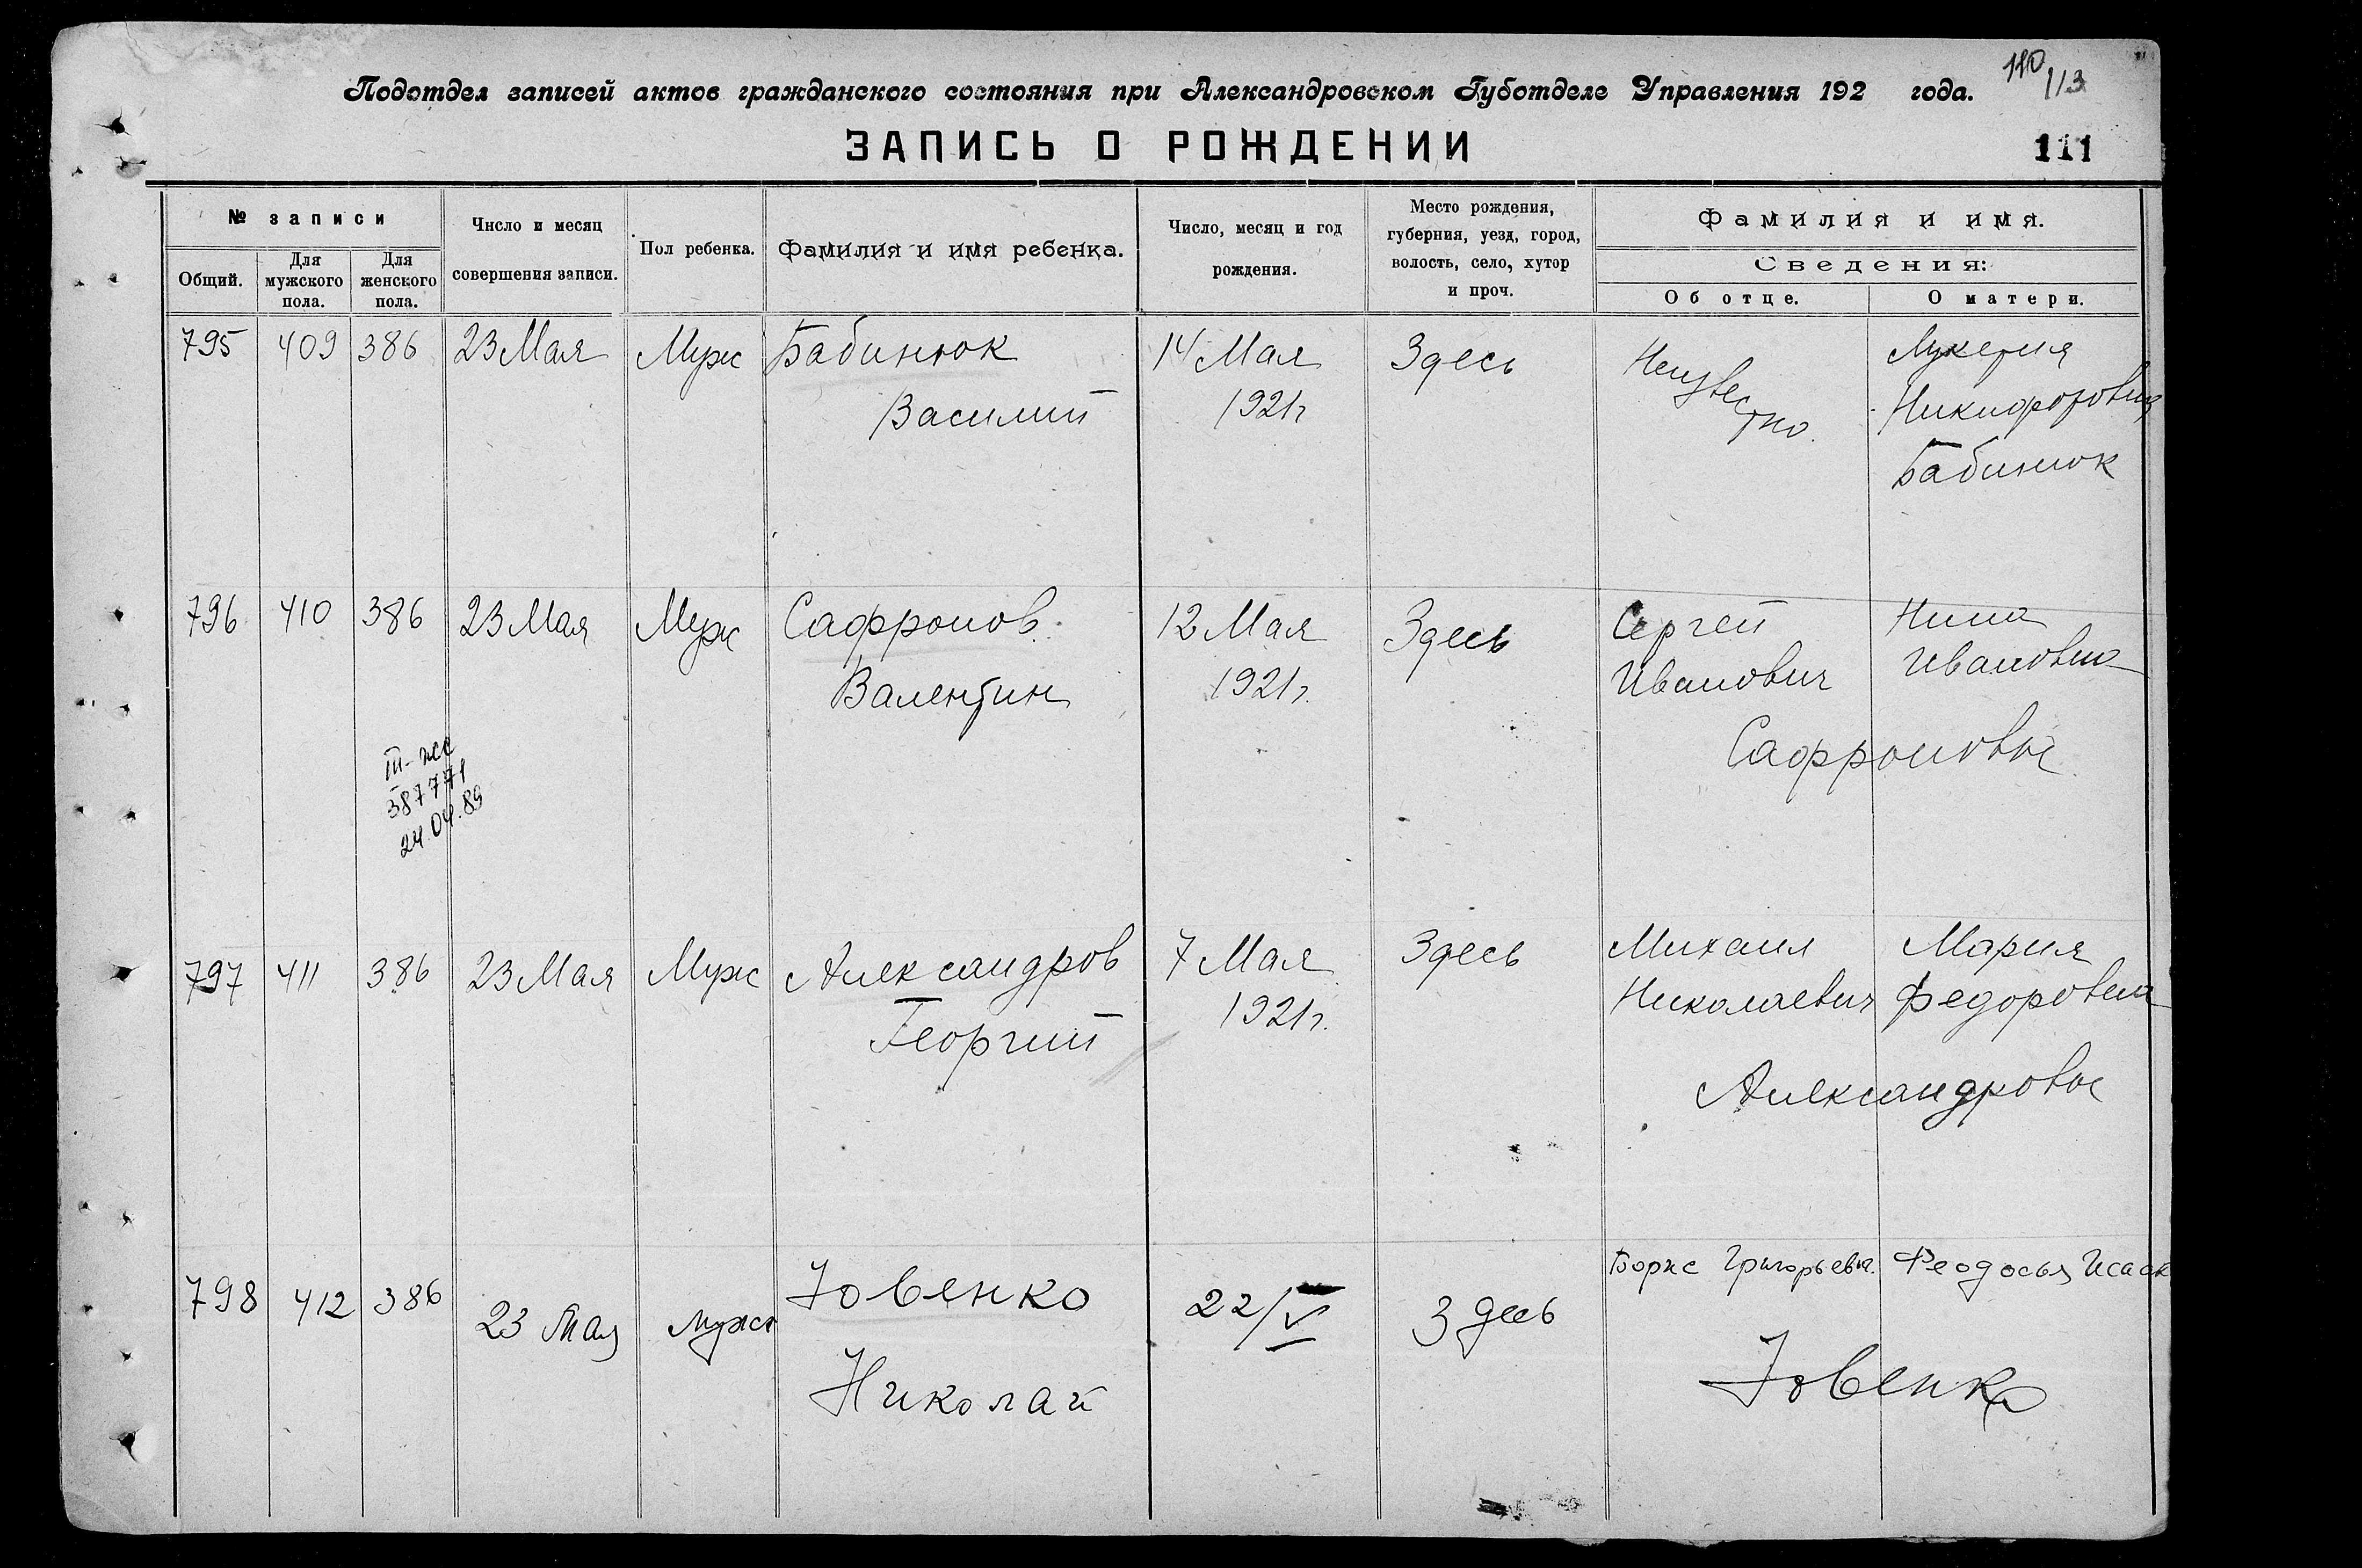 110
113
Подотдел записей актов гражданского состояния при Александровском Губотделе Управления 192 года.
ЗАПИСЬ О РОЖДЕНИИ
111
№ записи
Общий.
Для мужского пола.
Для женского пола.
Число и месяц совершения записи.
Пол ребенка.
Фамилия и имя ребенка.
Число, месяц и год рождения.
Место рождения, губерния, уезд, город, волость, село, хутор и проч.
Фамилия и имя.
Сведения:
Об отце.
О матери.
795 409 386 23 Мая Муж Бабинюк 14 Мая Здесь Неизвестно. Лукерия
Василий 1921г Никифоровна
Бабинюк
796 410 386 23 Мая Муж Сафронов 12 Мая Здесь Сергей Нина
Валентин 1921г. Иванович Ивановна
Сафроновы
III-жс
387771
24.04.89
797 411 386 23 Мая Муж Александров 7 Мая Здесь Михаил Мария
Георгий 1921г. Николаевич Федоровна
Александровы
798 412 386 23 Мая мужс Ювенко 22/V Здесь Борис Григорьевич. Феодосья Исаак
Николай Ювенко